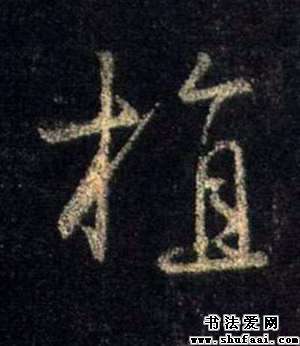 植
书法爱网
www.shufaai.com